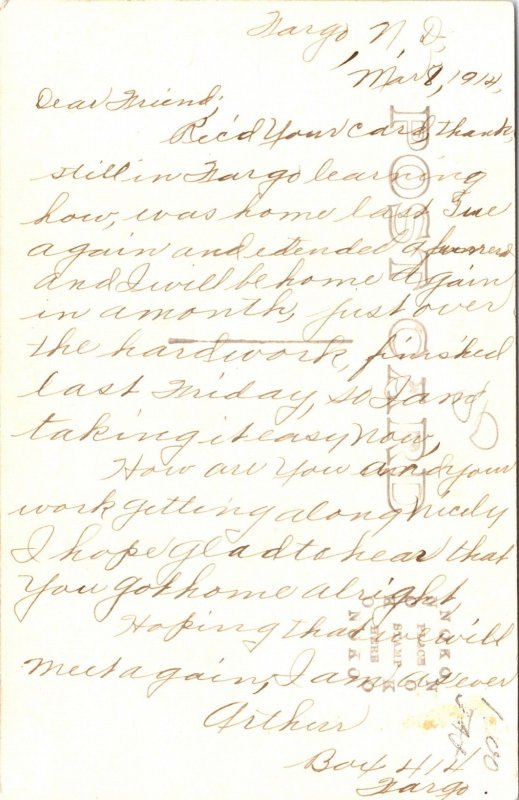 Fargo, N, D,
Mar 8, 1914,
Dear Friend;
Rec'd Your card, thanks,
still in Fargo learning
how, was home last Tue
again and etended a funeral
and I will be home again
in a month, just over
the hard work, finished
last Friday, so I am
taking it easy Now,
How are You and your
work getting along Nicely
I hope glad to hear that
You got home alright
Hoping that we will
meet again, I am as ever
Arthur
Box 414
Fargo.
POST CARD
PLACE
STAMP
HERE
NOKO
1.00